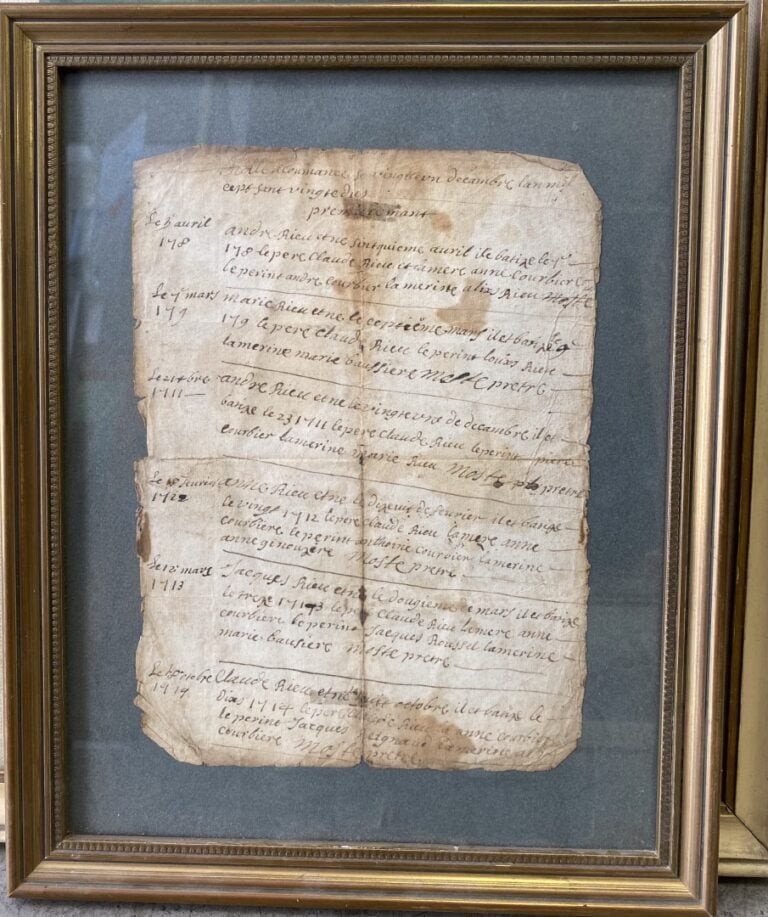 vingt e un decembre lan mil
cept sent vingt e dies
premieremant
Le 5 auril andre Rieu et ne sint quieme auril il e batize le 7e
178 178 le pere Claude Rieu et la mere anne Courbier
le perint andre courbier la merine alix Rieu Moste
Le 7e mars marie Rieu et ne le ceptiéme mars il et batize le 9e
179 179 le pere Claude Rieu le perint louis Rieu
la merine marie baussiere Moste pretre
andre Rieu et ne le vingt e vn de decembre il et
1711 batize le 23 1711 le pere Claude Rieu le perint pierre
courbier la merine marie Rieu Moste pretre
Le 18 feurier anne Rieu et ne le dizeuit de feurier il et batize
1712 le vingt 1712 le pere Claude Rieu la mere anne
courbiere le perint anthoine courbier la merine
anne ginouzere Moste pretre
Le 12e mars Jacques Rieu et ne le dougieme e mars il et batize
1713 le treze 1713 le pere Claude Rieu la mere anne
courbiere le perint Jacques Roussel la merine
marie bausiere Moste pretre
octobre Claude Rieu et ne le huit octobre il et batize le
1714 dixs 1714 le pere Claude Rieu anne courbiere
le perint Jacques la merine
courbiere Moste pretre